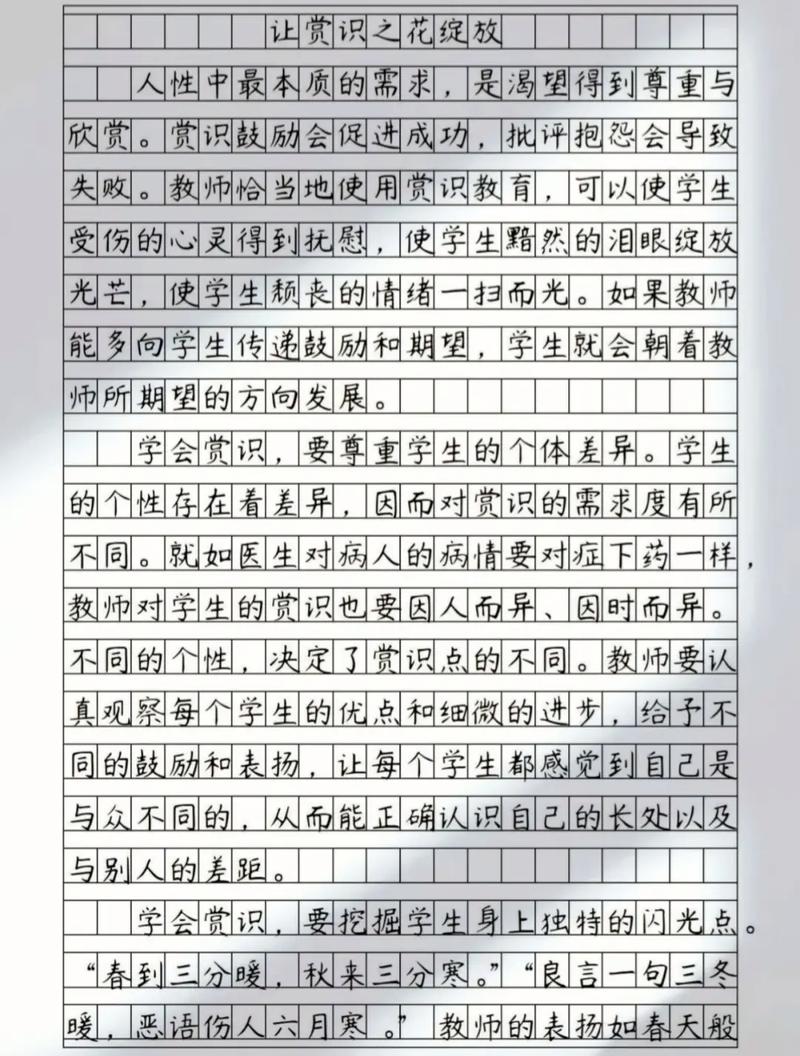 让赏识之花绽放
人性中最本质的需求，是渴望得到尊重与
欣赏。赏识鼓励会促进成功，批评抱怨会导致
失败。教师恰当地使用赏识教育，可以使学生
受伤的心灵得到抚慰，使学生黯然的泪眼绽放
光芒，使学生颓丧的情绪一扫而光。如果教师
能多向学生传递鼓励和期望，学生就会朝着教
师所期望的方向发展。
学会赏识，要尊重学生的个体差异。学生
的个性存在着差异，因而对赏识的需求度有所
不同。就如医生对病人的病情要对症下药一样，
教师对学生的赏识也要因人而异、因时而异。
不同的个性，决定了赏识点的不同。教师要认
真观察每个学生的优点和细微的进步，给予不
同的鼓励和表扬，让每个学生都感觉到自己是
与众不同的，从而能正确认识自己的长处以及
与别人的差距。
学会赏识，要挖掘学生身上独特的闪光点。
“春到三分暖，秋来三分寒。”“良言一句三冬
暖，恶语伤人六月寒。”教师的表扬如春天般